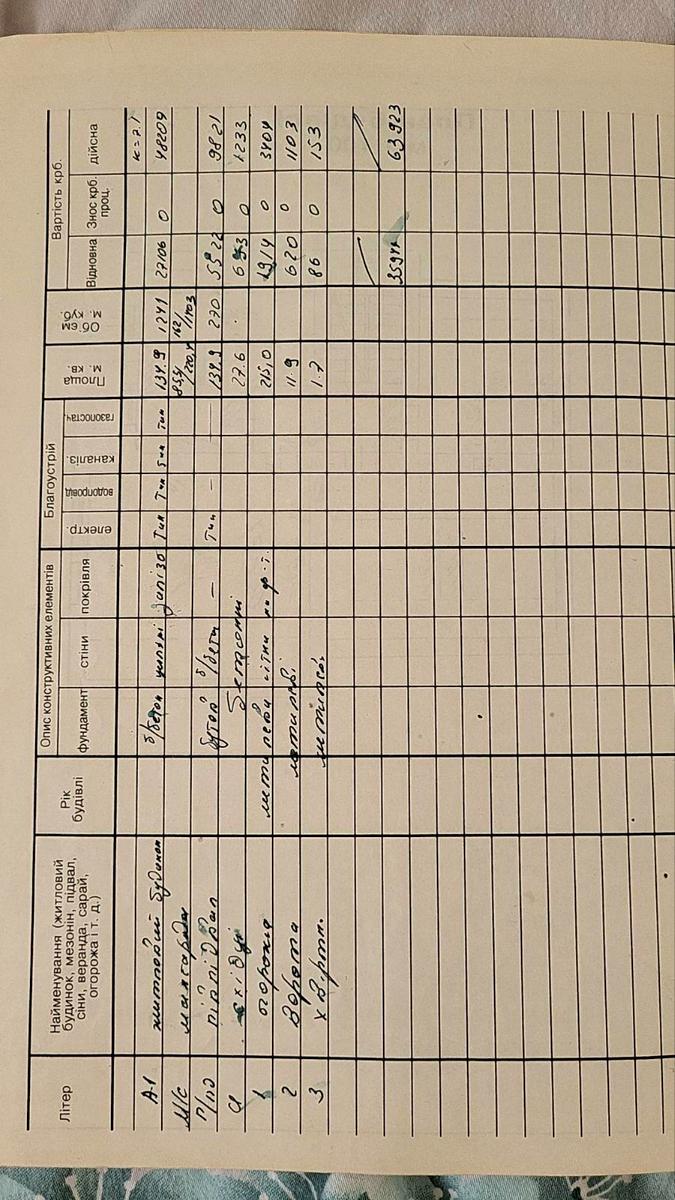 Літер
Найменування (житловий будинок, мезонін, підвал, сіни, веранда, сарай, огорожа і т. д.)
Рік будівлі
Опис конструктивних елементів
фундамент
стіни
покрівля
Благоустрій
електр.
водопровід
каналіз.
газопостач.
Площа м. кв.
Об'єм м. куб.
Вартість крб.
Відновна
Знос крб. проц.
дійсна
к=2.1
А-1 житловий будинок б/бетон залізо Тип Тип Тип 134.9 1241 27106 0 48209
М/С мансарда 85,5/220,4 162/1403
П/пд півпідвал бутов б/бетон — Тип — — 134.9 270 5522 0 9821
а східці бетонні 27.6 0 1233
1 огорожа сітка 215,0 1914 0 3404
2 Ворота металев. 11.9 620 0 1103
3 хвіртк. металев. 1.7 86 0 153
35941 63923